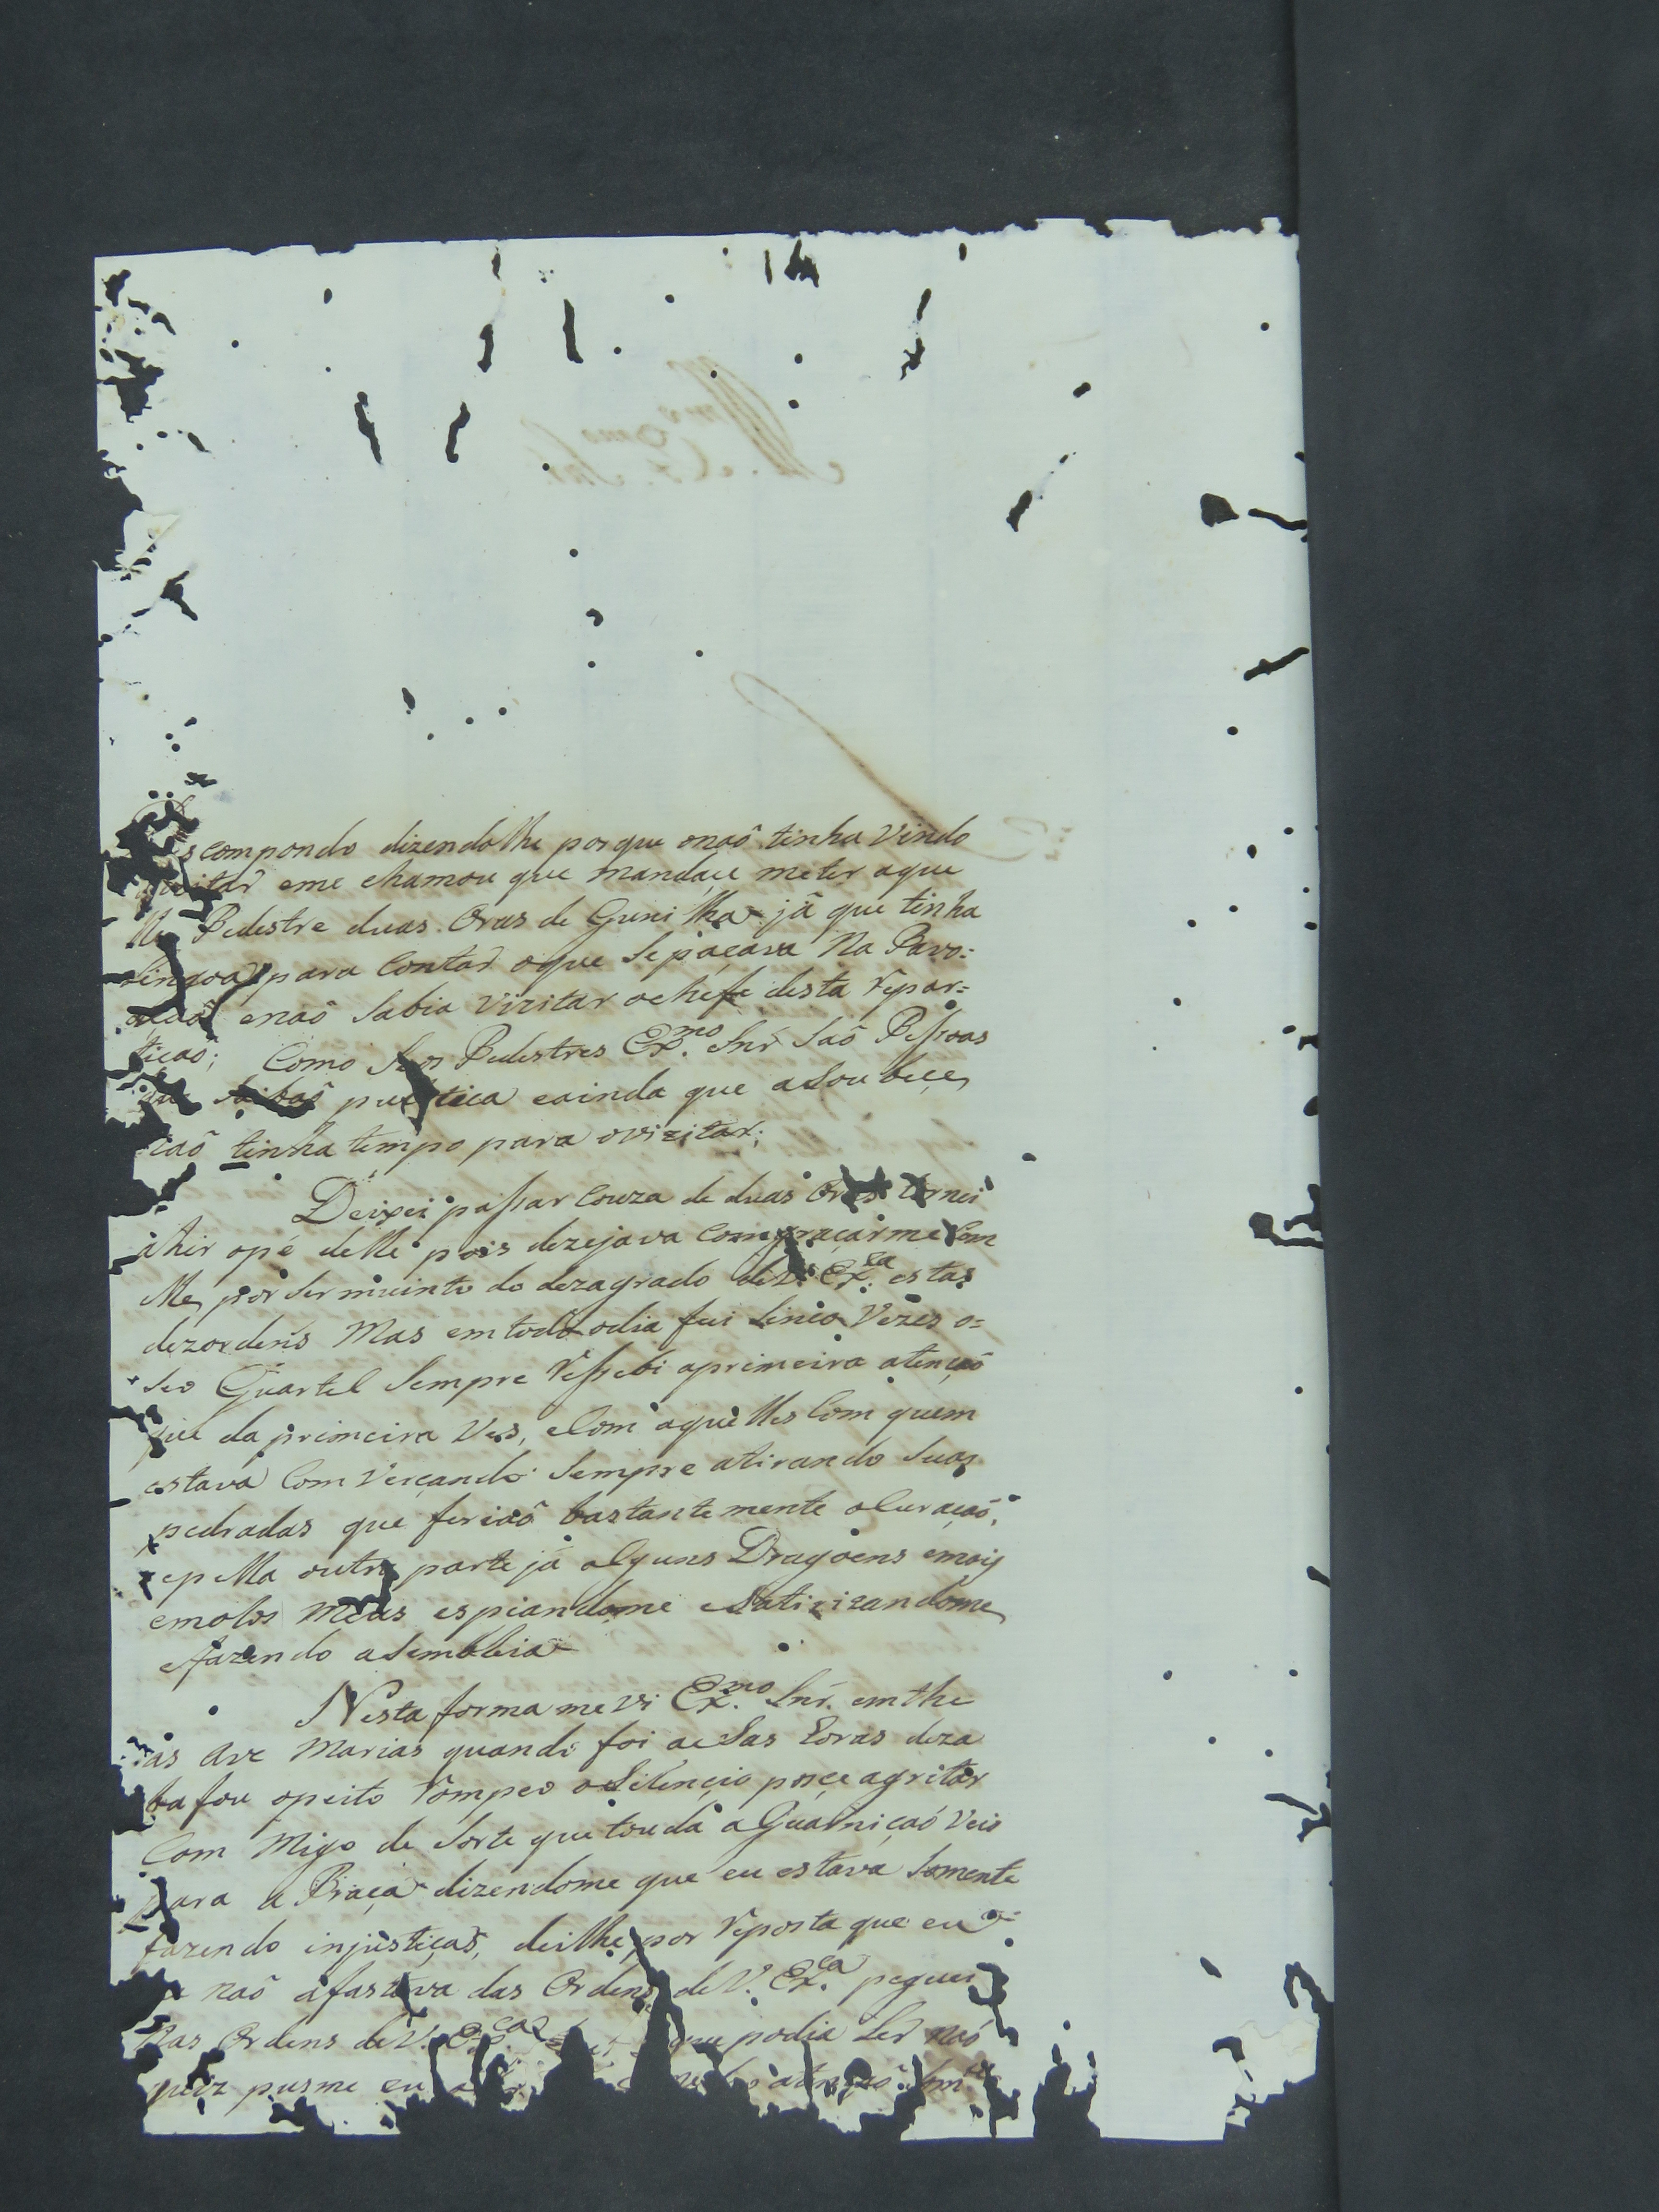 compondo dizendolhe porque onaõ tinha Vindo
eme chamou que mandaçe meter aque
lle Pedestre duas Oras de Gunilha já que tinha
lingoa para Contar oque Sepaçava Na Pavo=
açaõ enaõ Sabia Vizitar ochefe desta repar=
tiçaõ; Como Seos Pedestres Ex.mo Snr Saõ Peßoas
que pulitica eainda que aSoubeçe
naõ tinha tempo para ovizitar;
Deixei paßar Couza de duas Oras tornei
ahir opé delle pois dezejava Comgraçarme Com
elle, por Ser muinto do dezagrado de V. Ex.ca estas
dezordens Mas emtodo odia fui Sinco Vezes o=
Seo Quartel Sempre reßebi aprimeira atençaõ
que da primeira Ves, eCom aquelles Com quem
estava Com Verçando Sempre atirando Suas
pedradas que feriaõ bastantemente oCuraçaõ,
epella outra parte já alguns Dragoens emais
emolos meus espiandome eSatirizandome
efazendo aSembleia
Nesta forma me vi Ex.mo Snr. emthe
as Ave Marias quando foi aeSas Eoras deza
bafou opeito rompeo oSilençio poçe agritar
Com Migo de Sorte que touda aGuarniçaó Veio
para a Praça dizendome que eu estava Somente
fazendo injustiças, deilhe por reposta que eu
naõ afastava das Ordens de V. Ex.ca peguei
Nas Ordens de V. Ex.ca que podia Ler Naó
quiz pusme eu